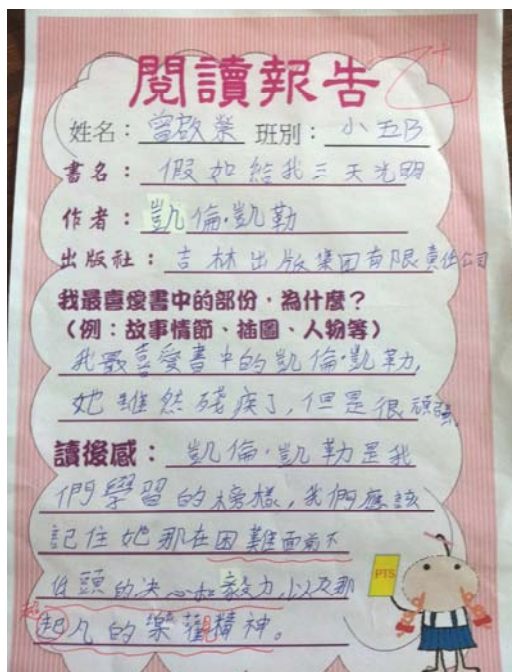 閱讀報告
姓名：曾啟榮 班別：小五B
書名：假如給我三天光明
作者：凱倫·凱勒
出版社：吉林出版集团有限責任公司
我最喜愛書中的部份，為什麼？
（例：故事情節、插圖、人物等）
我最喜愛書中的凱倫·凱勒，
她雖然殘疾了，但是很頑強。
讀後感：凱倫·凱勒是我
們學習的榜樣，我們應該
記住她那在困難面前不
低頭的决心和毅力，以及那
超凡的樂觀精神。
PTS